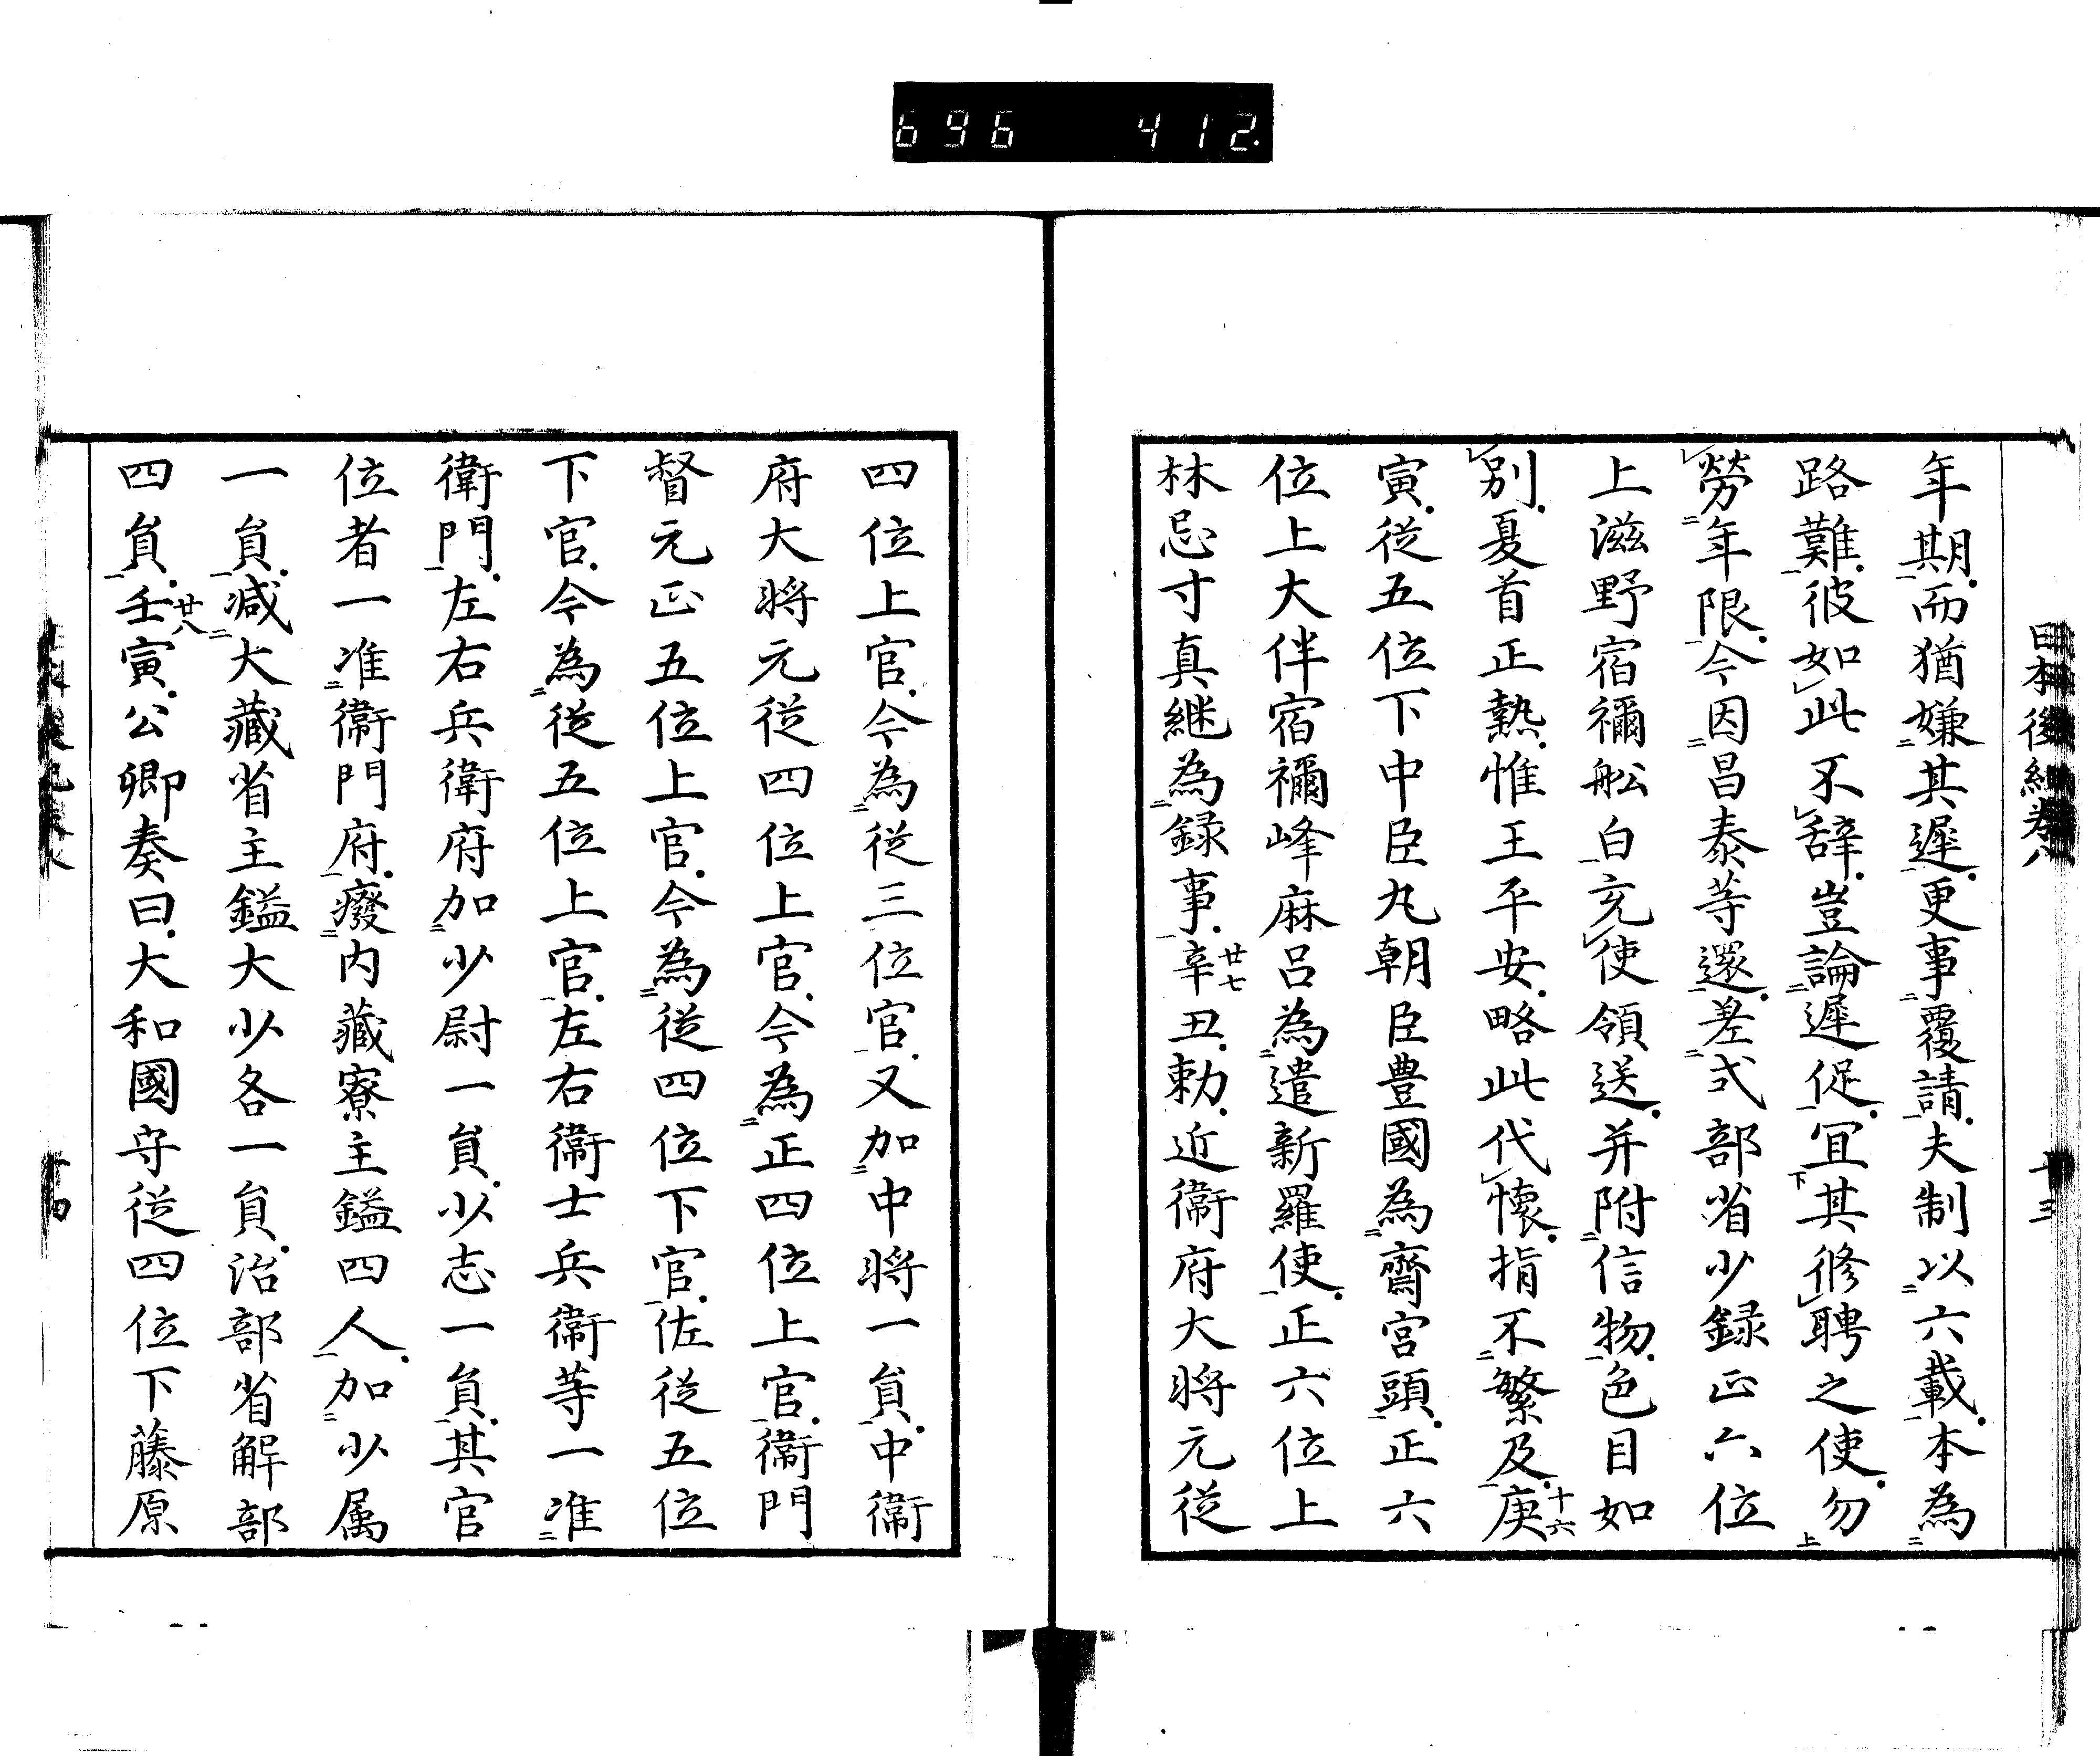 696 412.
日本後紀卷八
十三
年期而猶嫌其遲更事覆請夫制以六載本為
路難彼如此不辞豈論遲促宜其修聘之使勿
勞年限今因昌泰等還差式部省少録正六位
上滋野宿禰舩白充使領送并附信物色目如
別夏首正熱惟王平安略此代懷指不繁及庚十六
寅從五位下中臣丸朝臣豊國為齋宮頭正六
位上大伴宿禰峰麻呂為遣新羅使正六位上
林忌寸真継為録事辛廿七丑勅近衞府大將元從
四位上官今為從三位官又加中將一員中衞
府大將元從四位上官今為正四位上官衞門
督元正五位上官今為從四位下官佐從五位
下官今為從五位上官左右衞士兵衞等一准
衛門左右兵衛府加少尉一員少志一員其官
位者一准衞門府癈内藏寮主鎰四人加少属
一員减大藏省主鎰大少各一員治部省解部
四員壬廿八寅公卿奏曰大和國守從四位下藤原